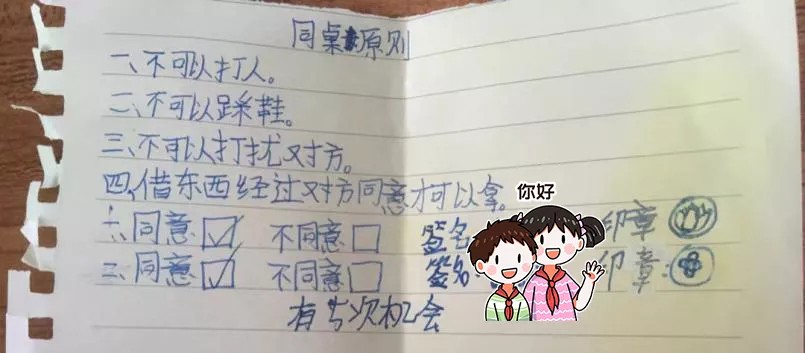 同桌原则
一、不可以打人。
二、不可以踩鞋。
三、不可以打扰对方。
四、借东西经过对方同意才可以拿。
你好
一、同意☑ 不同意☐ 签名 印章
二、同意☑ 不同意☐ 签名 印章:
有5次机会